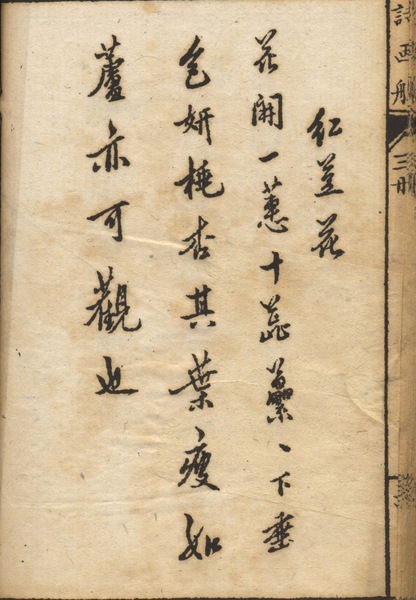 詩画舫 三冊
紅荳花
花開一蕙十蕊纍〻下垂
色妍桃杏其葉瘦如
蘆亦可觀也